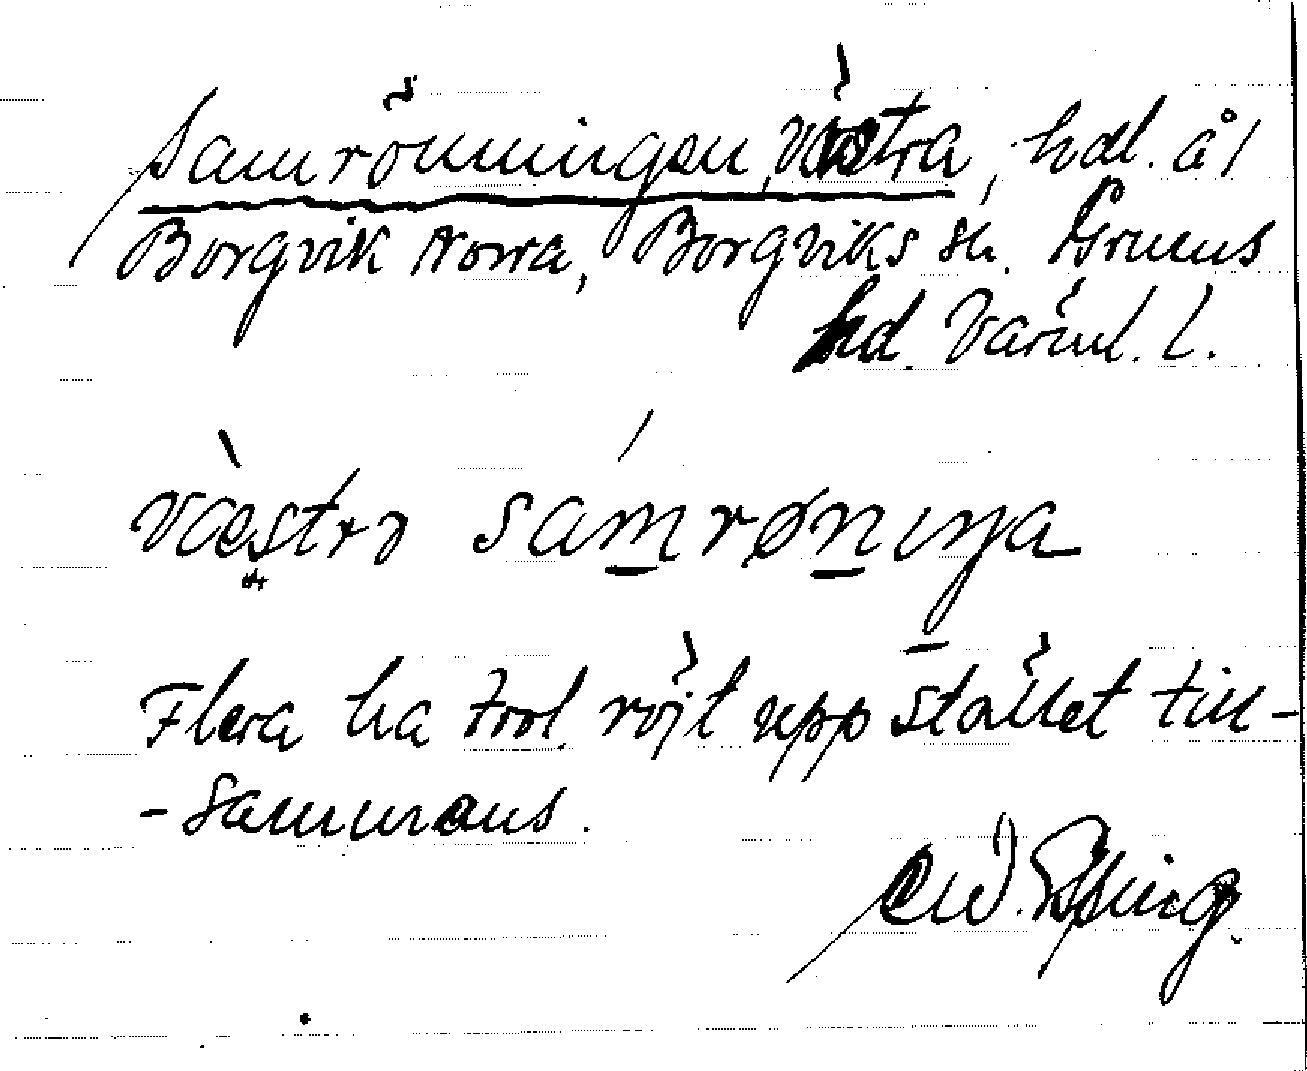 Samrönningen, Västra, hdl. å 1
Borgvik Norra, Borgviks sn. Grums
hd. Värml. l.
væstrɷ samrøniŋa
Flera ha trol. röjt upp stället till-
-sammans.